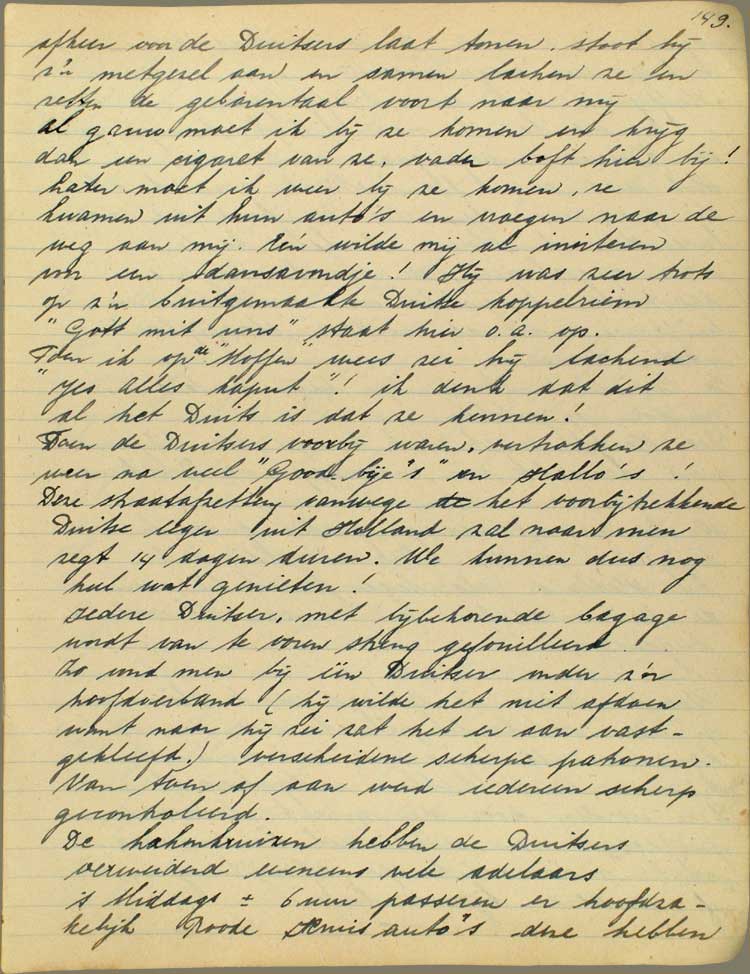 149.
afkeer voor de Duitsers laat tonen. stoot hij
z'n metgezel aan en samen lachen ze en
zetten de gebarentaal voort naar mij
al gauw moet ik bij ze komen en krijg
dan een cigaret van ze. vader boft hier bij!
Later moet ik weer bij ze komen, ze
kwamen uit hun auto's en vroegen naar de
weg aan mij. Eén wilde mij al inviteren
voor een dansavondje! Hij was zeer trots
op z'n buitgemaakte Duitse koppelriem
"Gott mit uns" staat hier o.a. op.
Toen ik op de "Moffen" wees zei hij lachend
"Yes Alles kaput"! ik denk dat dit
al het Duits is dat ze kennen!
Toen de Duitsers voorbij waren, vertrokken ze
weer na veel "Good-bije's" en Hallo's!
Deze straatafzetting vanwege het voorbijtrekkende
Duitse leger uit Holland zal naar men
zegt 14 dagen duren. We kunnen dus nog
heel wat genieten!
Iedere Duitser, met bijbehorende bagage
wordt van te voren streng gefouilleerd.
Zo vond men bij één Duitser onder z'n
hoofdverband (hij wilde het niet afdoen
want naar hij zei zat het er aan vast-
gekleefd.) verscheidene scherpe patronen.
Van toen af aan werd iedereen scherp
gecontroleerd.
De hakenkruizen hebben de Duitsers
verwijderd eveneens vele adelaars
's Middags ± 6 uur passeren er hoofdza-
kelijk Roode Kruis auto's deze hebben